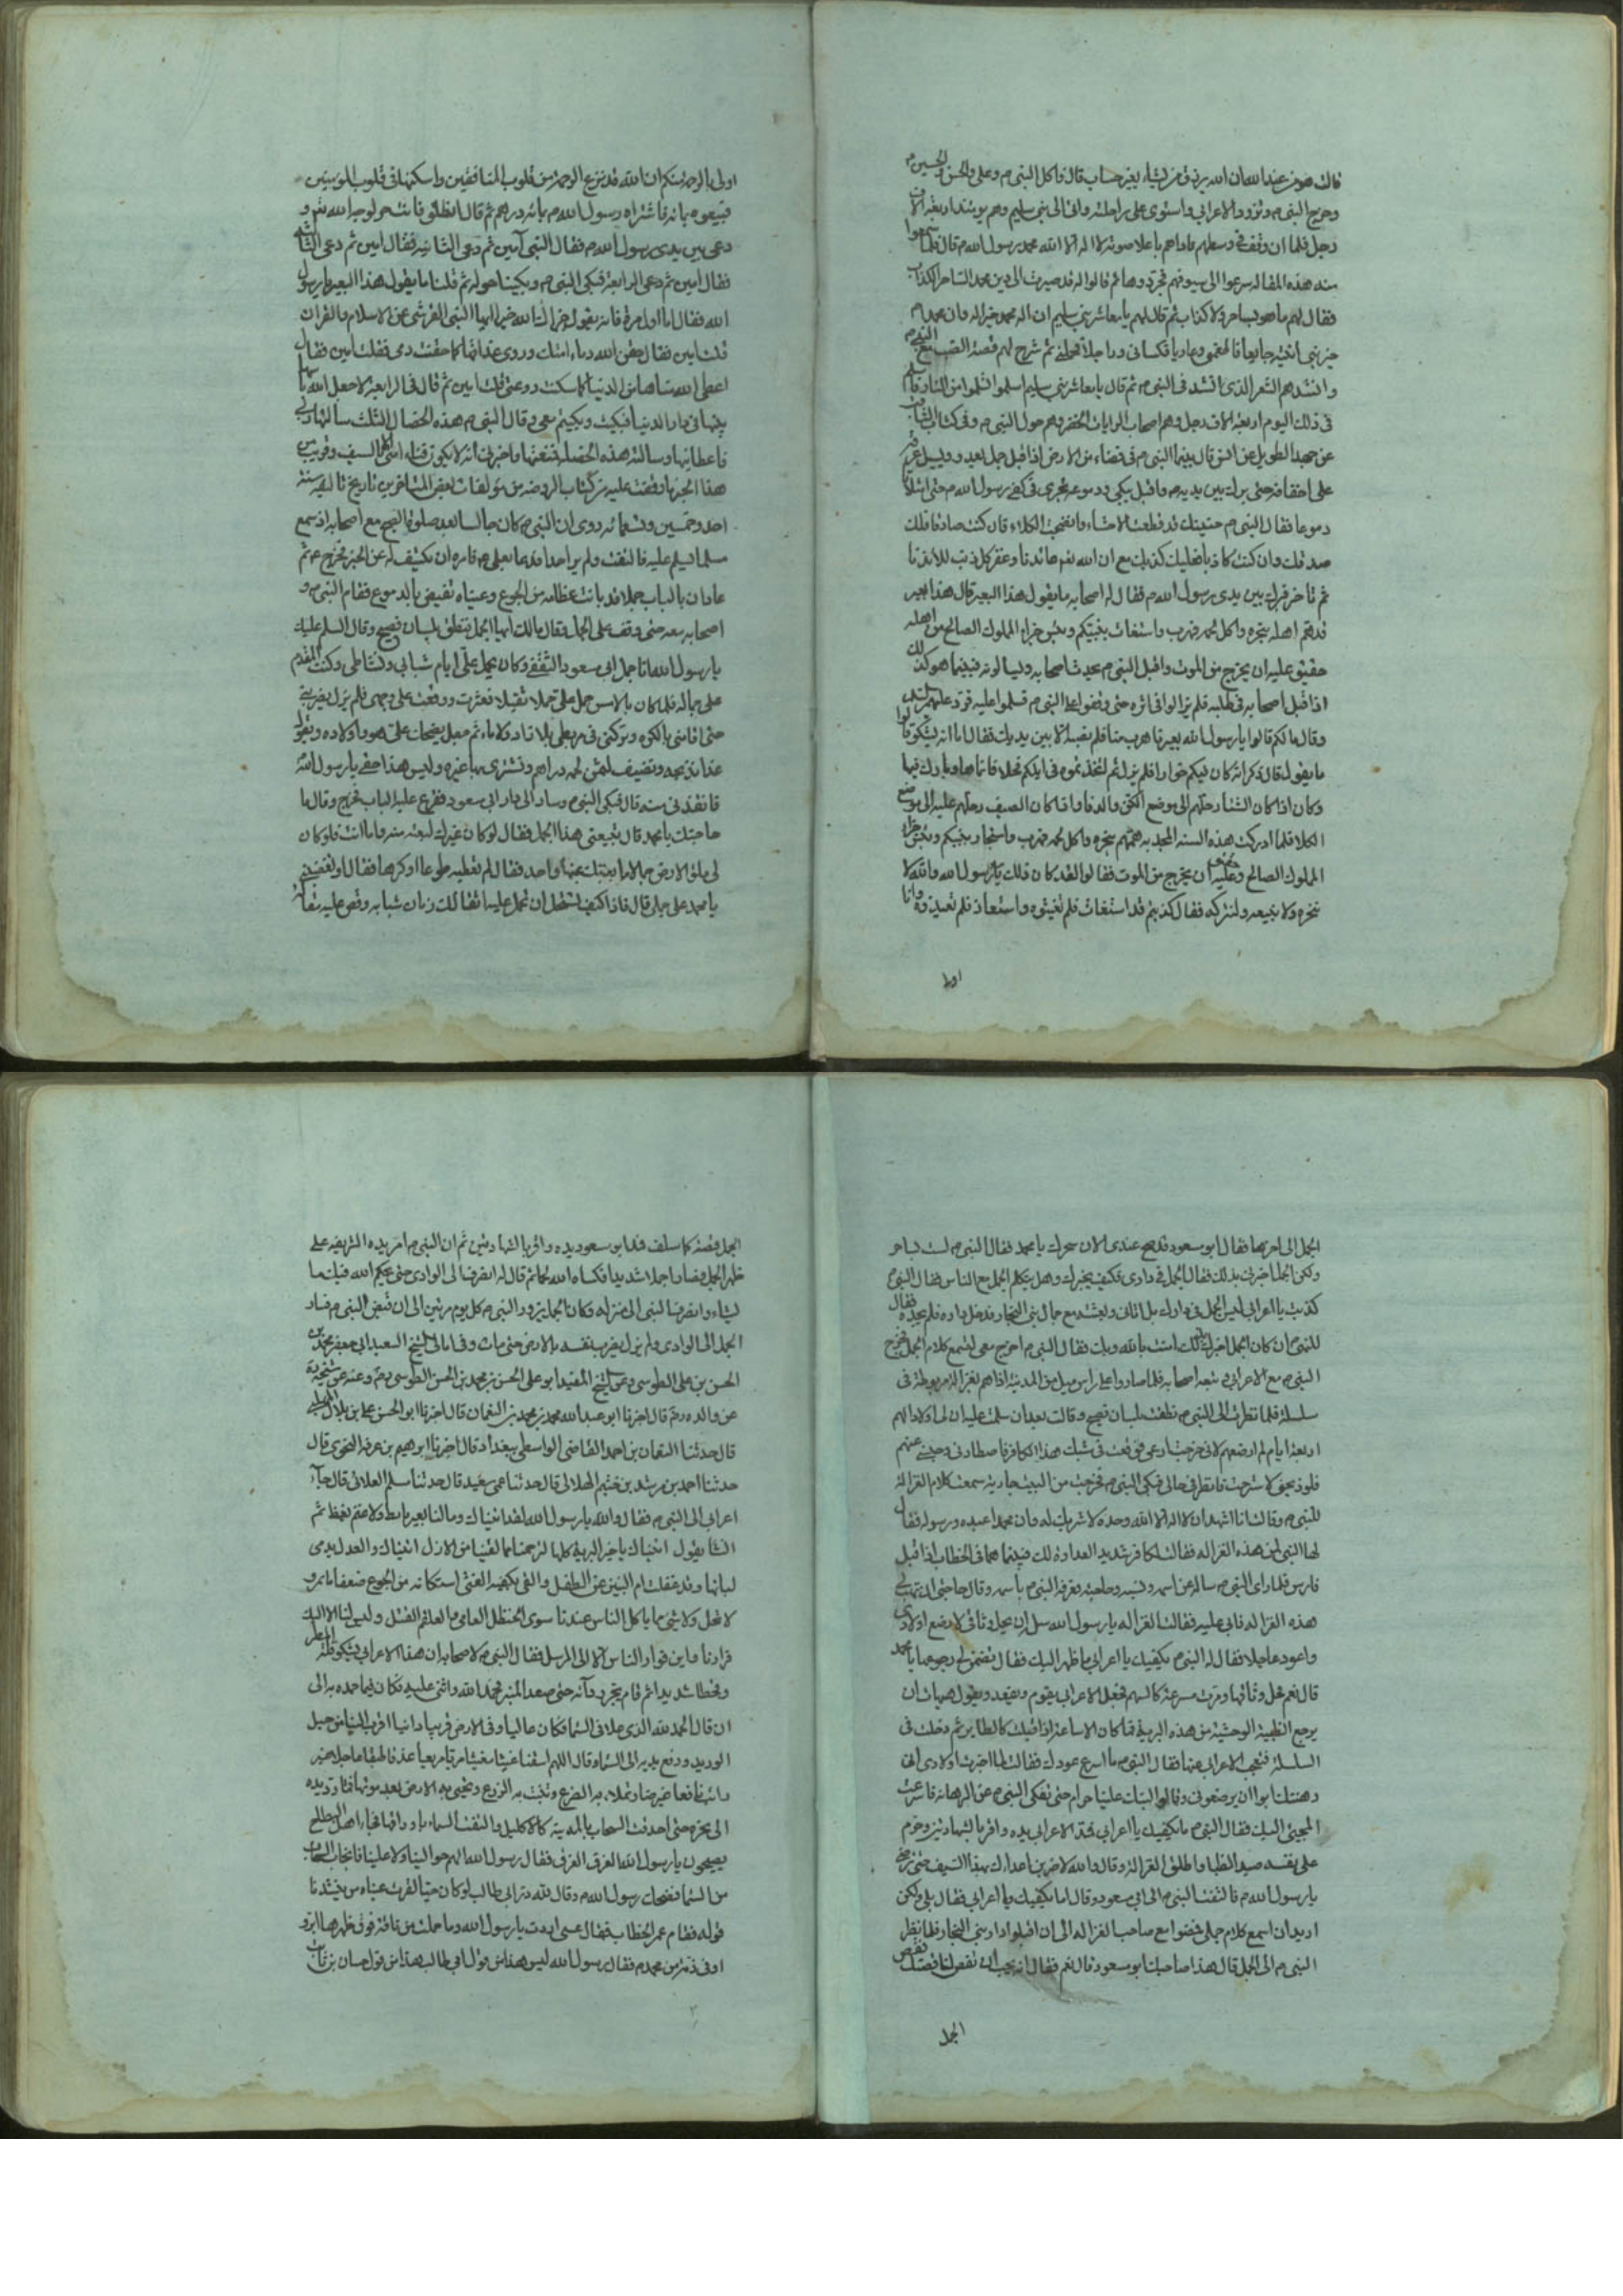 قالت هو من عند الله ان الله يرزق من يشاء بغير حساب قال فاكل النبي م وعلي والحسن والحسين م
وخرج النبي م وتزود الاعرابي واستوى على راحلته واتى الى بني سليم وهم يومئذ اربعة آلاف
رجل فلما ان وقف في وسطهم ناداهم باعلا صوته لا اله الا الله محمد رسول الله م قال فلما سمعوا
منه هذه المقالة سرعوا الى سيوفهم فجردوها ثم قالوا له قد صبوت الى دين محمد الساحر الكذاب
فقال لهم ما هو بساحر ولا كذاب ثم قال لهم يا معاشر بني سليم ان اله محمد خير اله وان محمدا م
خير نبي اتيته جايعا فاطعمني وعاريا فكساني وراجلا فحملني ثم شرح لهم قصة الضب مع النبي م
وانشدهم الشعر الذي انشد في النبي م ثم قال يا معاشر بني سليم اسلموا تسلموا من النار فاسلم
في ذلك اليوم اربعة الاف رجل وهم اصحاب الرايات الخضر وهم حول النبي م وفي كتاب الثاقب
عن حميد الطويل عن انس قال بينما النبي م في فضاء من الارض اذ اقبل جمل يعدو ويسيل عرقه
على اخفافه حتى برك بين يديه م واقبل يبكي ودموعه تجري في كفي رسول الله م حتى امتلأتا
دموعا فقال النبي م حسبك قد قطعت الاحشاء وانضجت الكلاء فان كنت صادقا فلك
صدقك وان كنت كاذبا فعليك كذبك مع ان الله لغير عائدنا وعقر كل ذنب للائذنا
ثم تاخر فبرك بين يدي رسول الله م فقال له اصحابه ما يقول هذا البعير قال هذا بعير
قد هم اهله بنحره واكل لحمه فهرب واستغاث بنبيكم وبئس جزاء المملوك الصالح من اهله
حقيق عليه ان يجزع من الموت واقبل النبي م يحدث اصحابه ويسالونه فبينما هو كذلك
اذ اقبل اصحابه في طلبه فلم يزالوا في اثره حتى وقفوا على النبي م فسلموا عليه فرد عليهم السلم
وقال مالكم قالوا يا رسول الله بعيرنا هرب منا فلم نصبه الا بين يديك فقال اما انه ليشكو قالوا
ما يقول قال ذكر انه كان فيكم خوارا فلم يزل ثم اتخذتموه في ابلكم فحلا فانماها وبارك فيها
وكان اذا كان الشتا رحلتم الى موضع الكن والدفا واذا كان الصيف رحلتم عليه الى موضع
الكلا فلما ادركت هذه السنة المجدبة هممتم بنحره واكل لحمه فهرب واستجار بنبيكم وبئس جزاء
المملوك الصالح وعليه ان يجزع من الموت فقالوا لقد كان ذلك يا رسول الله والله لا
ننحره ولا نبيعه ولنتركه فقال كذبتم قد استغاث فلم تغيثوه واستعاذ فلم تعيذوه وانا
اولى
اولى بالرحمة منكم ان الله قد نزع الرحمة من قلوب المنافقين واسكنها في قلوب المومنين
فبيعوه بمائة فاشتراه رسول الله م بمائة درهم ثم قال انطلق فانت حر لوجه الله ثم
دعى بين يدي رسول الله م فقال النبي آمين ثم دعى الثانية فقال امين ثم دعى الثالثة
فقال امين ثم دعى الرابعة فبكى النبي م وبكينا حوله ثم قلنا ما يقول هذا البعير يا رسول
الله فقال اما اول مرة فانه يقول جزاك الله خيرا ايها النبي القرشي عن الاسلام والقران
قلت امين فقال حقن الله دماء امتك وروى عداتها كما حقنت دمي فقلت امين فقال
اعطى الله مناها من الدنيا كما سكنت روعتي قلت امين ثم قال في الرابعة لا جعل الله باسها
بينها في دار الدنيا فبكيت وبكيتم معي وقال النبي م هذه الخصال الثلث سالتها ربي
فاعطانيها وسالته هذه الخصلة فمنعنيها واخبرني انه لا يكون فناء امتي الا السيف وقريب من
هذا الخبر ما وقفت عليه من كتاب الروضة من مولفات بعض المتاخرين تاريخ تاليفه سنة
احد وخمسين وتسعمائه روى ان النبي م كان جالسا بعد صلوة الصبح مع اصحابه اذ سمع
مسلما يسلم عليه فالتفت ولم ير احدا فدعا بعلي م فامره ان يكشف له عن الخبر فخرج م ثم
عاد ان بالباب جملا قد بانت عظامه من الجوع وعيناه تفيض بالدموع فقام النبي م و
اصحابه معه حتى وقف على الجمل وقال مالك ايها الجمل فنطق بلسان فصيح وقال السلم عليك
يا رسول الله انا جمل ابي سعود الثقفي وكان يحمل علي ايام شبابي ونشاطي وكنت المقدم
على جماله فلما كان بالامس حمل علي حملا ثقيلا فعثرت ووقعت على وجهي فلم يزل يضربني
حتى اقامني بالكره وتركني في مربطي بلا زاد ولا ماء ثم جعل يضحك علي هو واولاده ويقول
غدا نذبحه ونضيف ثمن لحمه دراهم ونشتري بها غيره وليس هذا حقي يا رسول الله
فانقذني منه قال فبكى النبي م وسار الى دار ابي سعود فقرع عليه الباب فخرج وقال ما
حاجتك يا محمد قال تبيعني هذا الجمل فقال لو كان غيرك لبعته منه واما انت فلو كان
لي ملؤ الارض جمالا ما بعتك بمنها واحد فقال لم تعطيه طوعا او كرها فقال او تغصبني
يا محمد على جملي قال فاذا كيف تستحل ان تحمل عليه اثقالك زمان شبابه وقص عليه مقالة
الجمل الى اخرها فقال ابو سعود قد صح عندي الان سحرك يا محمد فقال النبي م لست بساحر
ولكن الجمل اخبرني بذلك فقال الجمل في داري فكيف يخبرك وهل يتكلم الجمل مع الناس فقال النبي م
كذبت يا اعرابي ليس الجمل في دارك بل اتاني وبعثته مع جمال بني النجار فدخل داره فلم يجده فقال
للنبي م ان كان الجمل اخبرك بذلك امنت بالله وبك فقال النبي م اخرج معي لتسمع كلام الجمل فخرج
النبي م مع الاعرابي وتبعه اصحابه فلما صاروا على راس ميل من المدينة اذا هم بغزالة مربوطة في
سلسلة فلما نظرت الى النبي م نطقت بلسان فصيح وقالت بعد ان سلمت عليه ان لي اولادا لهم
اربعة ايام لم ارضعهم لاني خرجت ارعى فوقعت في شبك هذا الكافر فاصطادني وحبسني عنهم
فلو ذبحني لاسترحت فانظر في حالي فبكى النبي م فخرجت من البيت جارية سمعت كلام الغزالة
للنبي م وقالت انا اشهد ان لا اله الا الله وحده لا شريك له وان محمدا عبده ورسوله فقال
لها النبي لمن هذه الغزالة فقالت لكافر شديد العداوة لك فبينما هما في الخطاب اذ اقبل
فارس فلما راى النبي م ساله عن اسمه ونسبه وحاجته فعرفه النبي م باسمه وقال حاجتي ان تهب لي
هذه الغزالة فابى عليه فقالت الغزالة يا رسول الله سل ان يحل وثاقي لارضع اولادي
واعود عاجلا فقال له النبي م يكفيك يا اعرابي ما ظهر اليك فقال تضمن لي رجوعها يا محمد
قال نعم فحل وثاقها ومرت مسرعة كالسهم فجعل الاعرابي يقوم ويقعد ويقول هيهات ان
يرجع الظبية الوحشية من هذه البرية فما كان الا ساعة اذ اقبلت كالطاير ثم دخلت في
السلسلة فتعجب الاعرابي منها فقال النبي م ما اسرع عودك فقالت لما اخبرت اولادي اني
رهنتك ابوا ان يرضعوني وقالوا لبنك علينا حرام حتى تفكي النبي م عن الرهانة فاسرعت
المجيئ اليك فقال النبي م ما يكفيك يا اعرابي فمد الاعرابي يده واقر بالشهادتين وحرم
على نفسه صيد الظبا واطلق الغزالة وقال والله لاضربن اعداءك بهذا السيف حتى ترضى
يا رسول الله م فالتفت النبي م الى ابي سعود وقال اما يكفيك يا اعرابي فقال بلى ولكن
اريد ان اسمع كلام جملي فمضوا مع صاحب الغزالة الى ان اقبلوا دار بني النجار فلما نظر
النبي م الى الجمل قال هذا صاحبك ابو سعود قال نعم فقال انه يحب ان تقص لنا قصتك فقص
الجمل
الجمل قصته كما سلف فمد ابو سعود يده واقر بالشهادتين ثم ان النبي م امر يده الشريفة على
ظهر الجمل فصار جملا شديدا فكساه الله لحما ثم قال له انصرف الى الوادي حتى يحكم الله فيك ما
يشاء وانصرف النبي الى منزله وكان الجمل يزور النبي م كل يوم مرتين الى ان قبض النبي م فسار
الجمل الى الوادي ولم يزل يضرب بنفسه بالارض حتى مات وفي امالي الشيخ السعيد ابي جعفر محمد بن
الحسن بن علي الطوسي وعن الشيخ المفيد ابو علي الحسن بن محمد بن الحسن الطوسي وعنه عن شيخه
عن والده رحم قال اخبرنا ابو عبد الله محمد بن محمد بن النعمان قال اخبرنا ابو الحسن علي بن بلال المهلبي
قال حدثنا النعمان بن احمد القاضي الواسطي ببغداد قال اخبرنا ابرهيم بن عرفة النحوي قال
حدثنا احمد بن رشد بن خثيم الهلالي قال حدثنا عمي سعيد قال حدثنا مسلم الغلابي قال جآء
اعرابي الى النبي م فقال والله يا رسول الله لقد اتيناك وما لنا بعير يئط ولا غنم يغط ثم
انشا يقول اتيناك يا خير البرية كلها لترحمنا مما لقينا من الازل اتيناك والعذراء يدمى
لبانها وقد شغلت ام البنين عن الطفل والقى بكفيه الفتى استكانة من الجوع ضعفا ما يمر و
لا يحلي ولا شئ مما ياكل الناس عندنا سوى الحنظل العامي والعلهز الفسل وليس لنا الا اليك
فرارنا واين فرار الناس الا الى الرسل فقال النبي م لاصحابه ان هذا الاعرابي يشكو قلة المطر
وقحطا شديدا ثم قام يجر ردآئه حتى صعد المنبر فحمد الله واثنى عليه فكان فيما حمده به الى
ان قال الحمد لله الذي علا في السما فكان عاليا وفي الارض قريبا دانيا اقرب الينا من حبل
الوريد ورفع يديه الى السماء وقال اللهم اسقنا غيثا مغيثا مريا مريعا غدقا طبقا عاجلا غير
رائث نافعا غير ضار تملاء به الضرع وتنبت به الزرع وتحيي به الارض بعد موتها فما رد يده
الى نحره حتى احدقت السحاب بالمدينة كالاكليل والتفت السماء باوداقها فجاء اهل البطاح
يصيحون يا رسول الله الغرق الغرق فقال رسول الله اللهم حوالينا ولا علينا فانجاب السحاب
من السما فضحك رسول الله م وقال لله در ابي طالب لو كان حيا لقرت عيناه من ينشدنا
قوله فقام عمر الخطاب فقال عسى اردت يا رسول الله وما حملت من ناقة فوق ظهرها ابر و
اوفى ذمة من محمد م فقال رسول الله ليس هذا من قول ابي طالب هذا من قول حسان بن ثابت